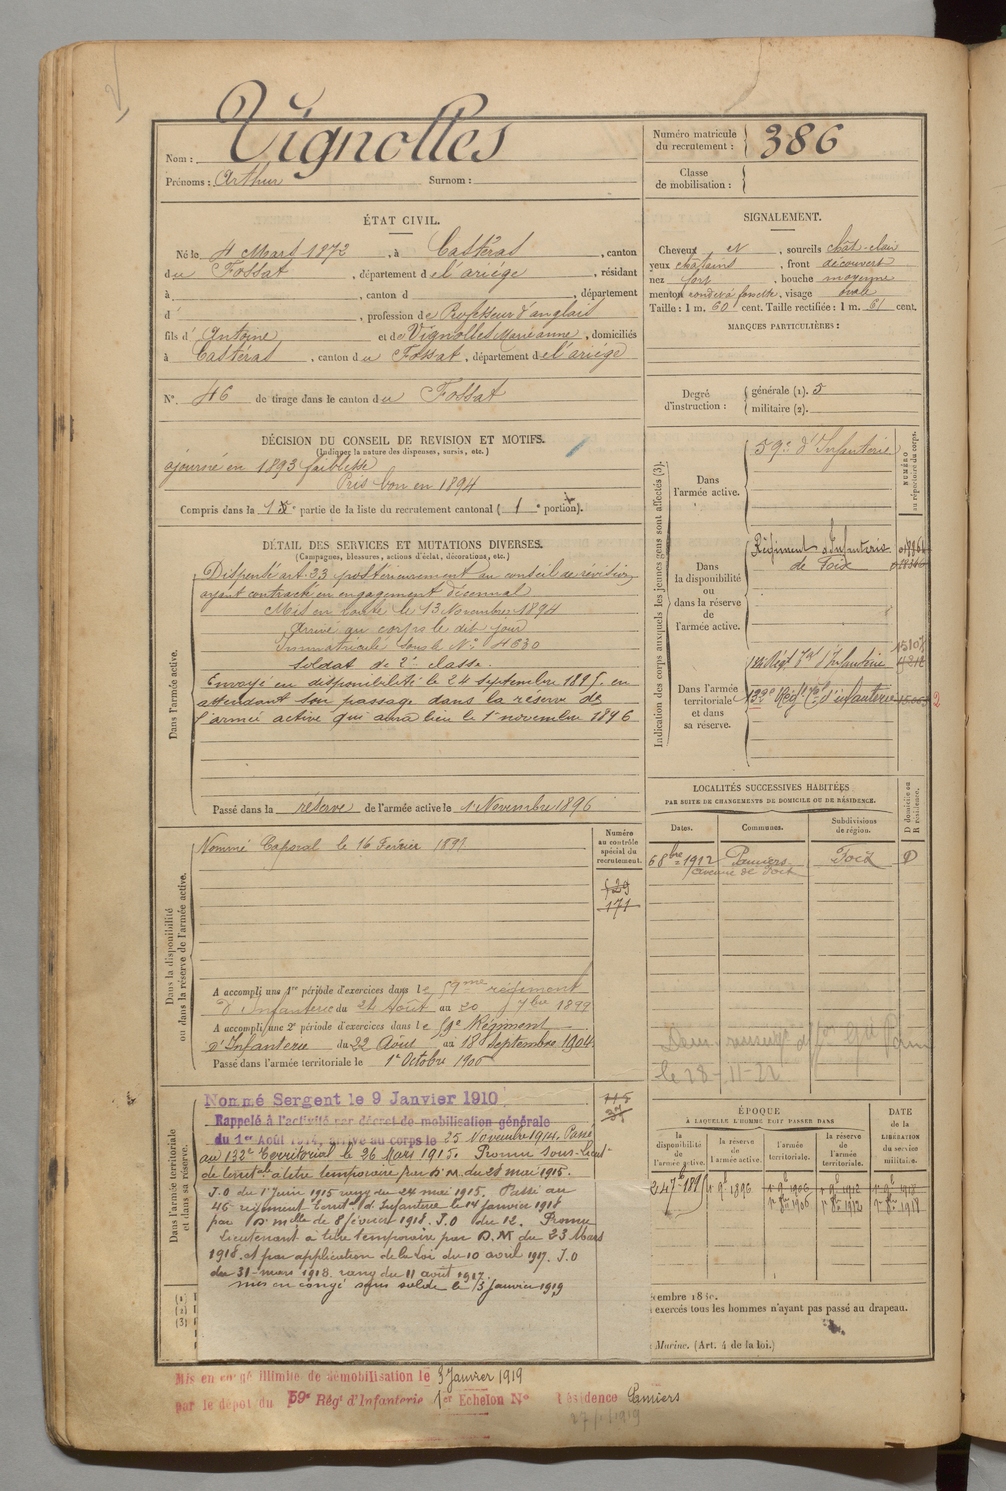 Nom : Vignolles
Prénoms : Arthur Surnom :
Numéro matricule du recrutement : 386
Classe de mobilisation :
ÉTAT CIVIL.
Né le 4 Mars 1872, à Castéras, canton
du Fossat, département de l'ariége, résidant
à , canton d , département
d , profession de Professeur d'anglais
fils d' Antoine et de Vignolles Marieanne, domiciliés
à Castéras, canton du Fossat, département de l'ariége
N° 46 de tirage dans le canton du Fossat
SIGNALEMENT.
Cheveux et , sourcils chât-clair
yeux chatains, front découvert
nez fort, bouche moyenne
menton rond à fossette, visage ovale
Taille : 1 m. 60 cent. Taille rectifiée : 1 m. 61 cent.
MARQUES PARTICULIÈRES :
Degré d'instruction : générale (1). 3
militaire (2).
DÉCISION DU CONSEIL DE REVISION ET MOTIFS.
(Indiquer la nature des dispenses, sursis, etc.)
ajourné en 1893 faiblesse
Pris bon en 1894
Compris dans la 1e partie de la liste du recrutement cantonal ( 1 e portion).
DÉTAIL DES SERVICES ET MUTATIONS DIVERSES.
(Campagnes, blessures, actions d'éclat, décorations, etc.)
Dans l'armée active.
Dispensé art. 33 postérieurement au conseil de révision
ayant contracté un engagement décennal
Mis en route le 13 Novembre 1894
Arrivé au corps le dit jour
Immatriculé sous le N° 4630
Soldat de 2e classe.
Envoyé en disponibilité le 24 septembre 1895 en
attendant son passage dans la réserve de
l'armée active qui aura lieu le 1er novembre 1896
Passé dans la réserve de l'armée active le 1 Novembre 1896
Indication des corps auxquels les jeunes gens sont affectés (3).
NUMÉRO au répertoire du corps.
Dans l'armée active.
59e d'Infanterie
Dans la disponibilité ou dans la réserve de l'armée active.
Régiment d'Infanterie
de Foix
Dans l'armée territoriale et dans sa réserve.
Régt Tal d'Infanterie
132e Régt Tal d'infanterie
2
LOCALITÉS SUCCESSIVES HABITÉES
PAR SUITE DE CHANGEMENTS DE DOMICILE OU DE RÉSIDENCE.
Dates. Communes. Subdivisions de région. D domicile ou R résidence.
6 8bre 1912 Pamiers Foix D
avenue de Foix
Dans la disponibilité ou dans la réserve de l'armée active.
Numéro au contrôle spécial du recrutement.
Nommé Caporal le 16 Février 1899
171
A accompli une 1re période d'exercices dans le 59me régiment
d'Infanterie du 24 Août au 20 7bre 1899
A accompli une 2e période d'exercices dans le 59e Régiment
d'Infanterie du 22 Août au 18 Septembre 1904
Passé dans l'armée territoriale le 1er Octobre 1906
le 28-11-22
Dans l'armée territoriale et dans sa réserve.
Nommé Sergent le 9 Janvier 1910
Rappelé à l'activité par décret de mobilisation générale
du 1er Août 1914, arrivé au corps le 25 Novembre 1914. Passé
au 132e Territorial le 26 Mars 1915. Promu Sous-Lieut-
de territale à titre temporaire par D.M. du 28 mai 1915.
J.O du 1er Juin 1915 rang du 24 mai 1915. Passé au
46 régiment Territ. d'Infanterie le 14 janvier 1918
par D. melle de 8 février 1918. J.O du 12. Promu
Lieutenant à titre temporaire par D.M du 23 Mars
1918 et par application de la loi du 10 avril 1917. J.O
du 31 mars 1918 rang du 11 août 1917.
mis en congé sans solde le 13 janvier 1919
ÉPOQUE
À LAQUELLE L'HOMME DOIT PASSER DANS
la disponibilité de l'armée active. la réserve de l'armée active. l'armée territoriale. la réserve de l'armée territoriale.
DATE de la LIBÉRATION du service militaire.
24 7b 1895 1 9 1896 1 9 1906 1 9 1912 1 9 1918
1 8bre 1906 1 8bre 1912 1 8bre 1918
(1)
(2)
(3)
cembre 18
exercés tous les hommes n'ayant pas passé au drapeau.
Marine. (Art. 4 de la loi.)
Mis en congé illimité de démobilisation le 3 Janvier 1919
par le dépôt du 59e Régt d'Infanterie 1er Echelon N° Résidence Pamiers
27/1/1919